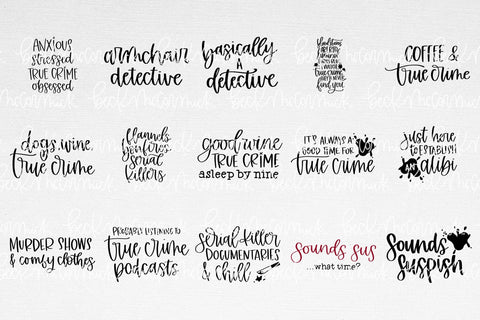 ANXIOUS
stressed
TRUE CRIME
obsessed
armchair
detective
basically
A
detective
COFFEE &
true crime
dogs, wine,
true crime
serial
killers
good wine
TRUE CRIME
asleep by nine
IT'S ALWAYS A
GOOD TIME FOR
true crime
just here
TO ESTABLISH
AN alibi
MURDER SHOWS
& comfy clothes
PROBABLY LISTENING TO
true crime
podcasts
Serial Killer
DOCUMENTARIES
& Chill
Sounds sus
...what time?
Sounds
Suspish
beck mccormick